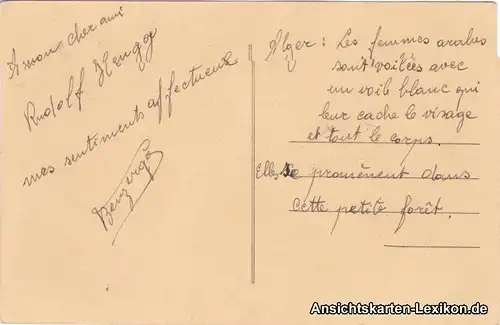 A mon cher ami
Rudolf Hengg
mes sentiments affectueux
Alger : Les femmes arabes
sont voilées avec
un voile blanc qui
leur cache le visage
et tout le corps.
Elles se promènent dans
cette petite forêt.
Ansichtskarten-Lexikon.de